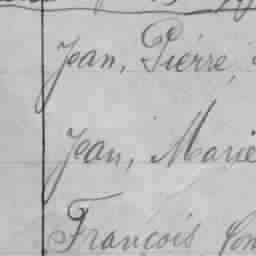 Jean, Pierre,
Jean, Marie
François